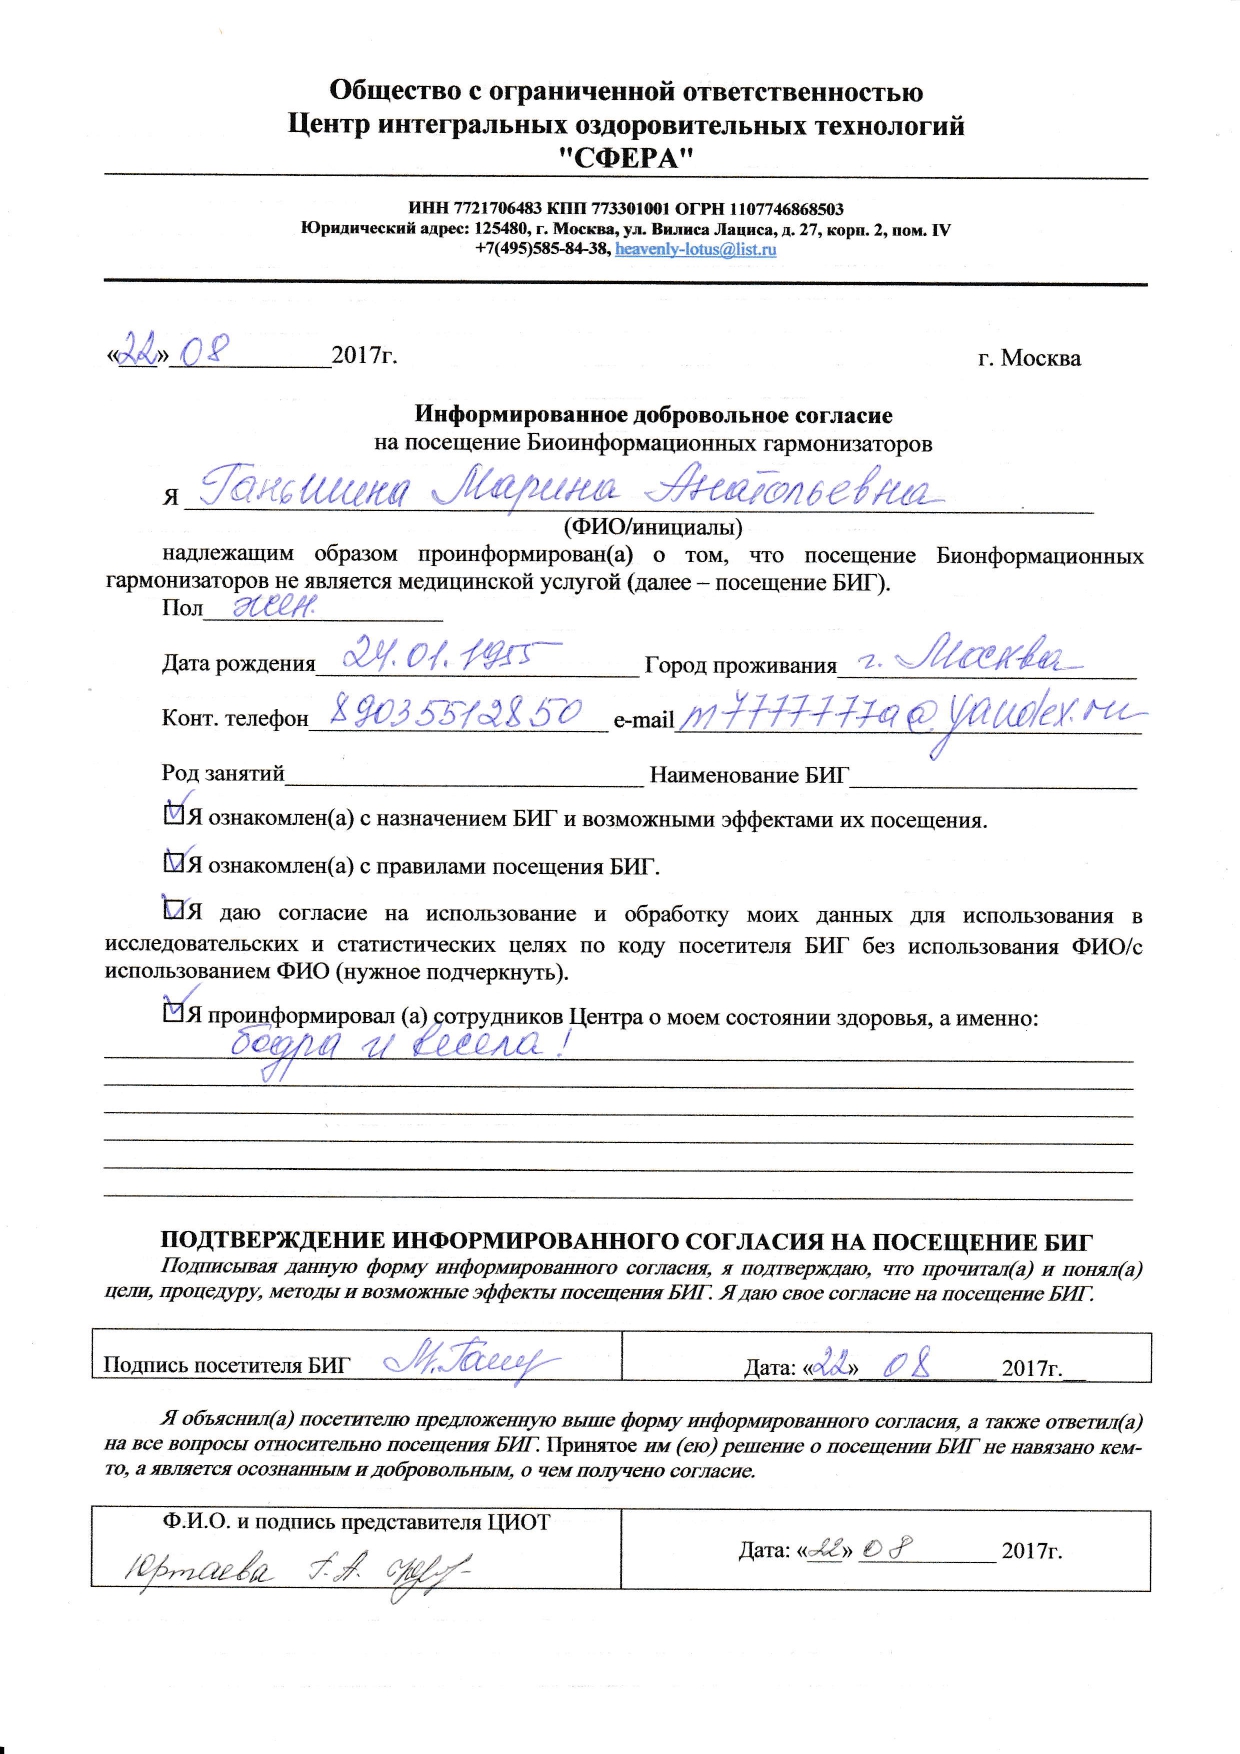 Общество с ограниченной ответственностью
Центр интегральных оздоровительных технологий
"СФЕРА"
ИНН 7721706483 КПП 773301001 ОГРН 1107746868503
Юридический адрес: 125480, г. Москва, ул. Вилиса Лациса, д. 27, корп. 2, пом. IV
+7(495)585-84-38, heavenly-lotus@list.ru
«22» 08 2017г. г. Москва
Информированное добровольное согласие
на посещение Биоинформационных гармонизаторов
Я Ганьшина Марина Анатольевна
(ФИО/инициалы)
надлежащим образом проинформирован(а) о том, что посещение Бионформационных
гармонизаторов не является медицинской услугой (далее – посещение БИГ).
Пол жен.
Дата рождения 24.01.1955 Город проживания г. Москва
Конт. телефон 89035512850 e-mail m7777777a@yandex.ru
Род занятий Наименование БИГ
Я ознакомлен(а) с назначением БИГ и возможными эффектами их посещения.
Я ознакомлен(а) с правилами посещения БИГ.
Я даю согласие на использование и обработку моих данных для использования в
исследовательских и статистических целях по коду посетителя БИГ без использования ФИО/с
использованием ФИО (нужное подчеркнуть).
Я проинформировал (а) сотрудников Центра о моем состоянии здоровья, а именно:
бодра и весела!
ПОДТВЕРЖДЕНИЕ ИНФОРМИРОВАННОГО СОГЛАСИЯ НА ПОСЕЩЕНИЕ БИГ
Подписывая данную форму информированного согласия, я подтверждаю, что прочитал(а) и понял(а)
цели, процедуру, методы и возможные эффекты посещения БИГ. Я даю свое согласие на посещение БИГ.
Подпись посетителя БИГ Дата: «22» 08 2017г.
Я объяснил(а) посетителю предложенную выше форму информированного согласия, а также ответил(а)
на все вопросы относительно посещения БИГ. Принятое им (ею) решение о посещении БИГ не навязано кем-
то, а является осознанным и добровольным, о чем получено согласие.
Ф.И.О. и подпись представителя ЦИОТ
Юртаева Г.А. Дата: «22» 08 2017г.